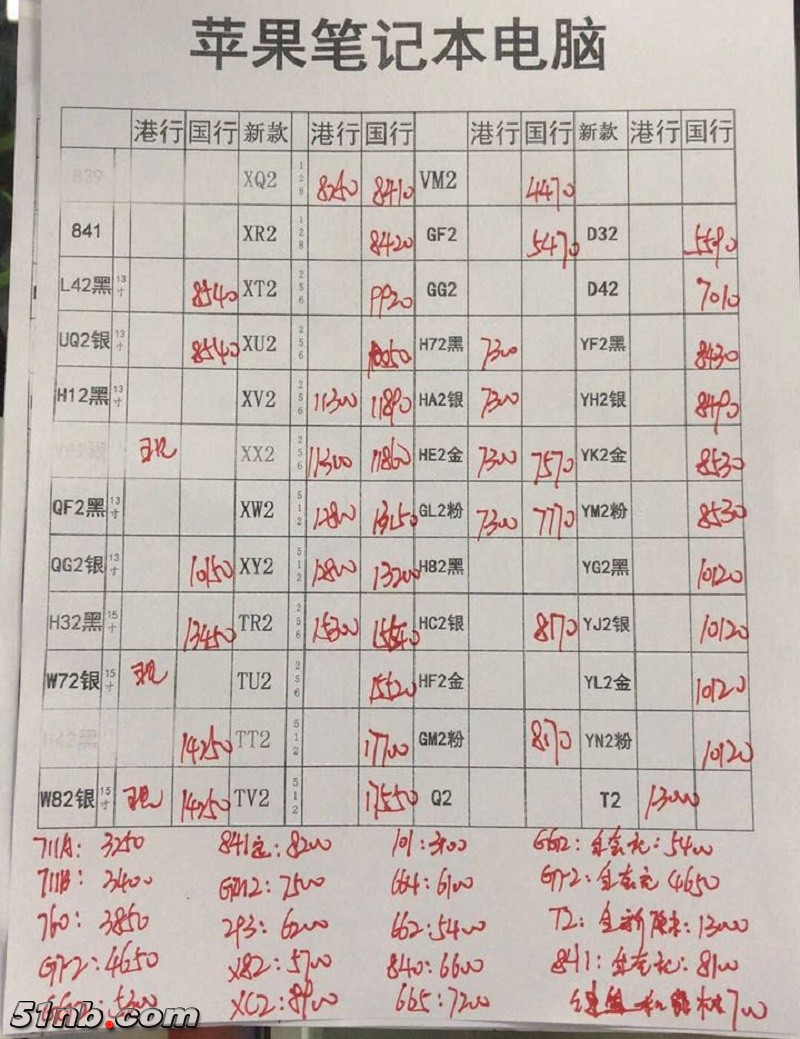 苹果笔记本电脑
港行 国行 新款 港行 国行 港行 国行 新款 港行 国行
839 XQ2 128 8250 8410 VM2 4470
841 XR2 128 8420 GF2 5470 D32 5590
L42黑 13寸 8540 XT2 256 9920 GG2 D42 7010
UQ2银 13寸 8540 XU2 256 10050 H72黑 7300 YF2黑 8430
H12黑 13寸 XV2 256 11300 11890 HA2银 7300 YH2银 8490
现 XX2 256 11300 11860 HE2金 7300 7570 YK2金 8530
QF2黑 13寸 XW2 512 12800 13150 GL2粉 7300 7770 YM2粉 8530
QG2银 13寸 10150 XY2 512 12800 13200 H82黑 YG2黑 10120
H32黑 15寸 13450 TR2 256 15300 15540 HC2银 8170 YJ2银 10120
W72银 15寸 现 TU2 256 15520 HF2金 YL2金 10120
14250 TT2 512 17700 GM2粉 8170 YN2粉 10120
W82银 15寸 现 14250 TV2 512 17550 Q2 T2 13000
711A: 3250 841: 8200 101: 3900 GG2: 5400
711B: 3400 GM2: 7500 664: 6100 4650
760: 3850 293: 6200 662: 5400 T2: 全新 13000
4650 X82: 5700 840: 6600 841: 8100
5300 XC2: 8900 665: 7200 700
51nb.com